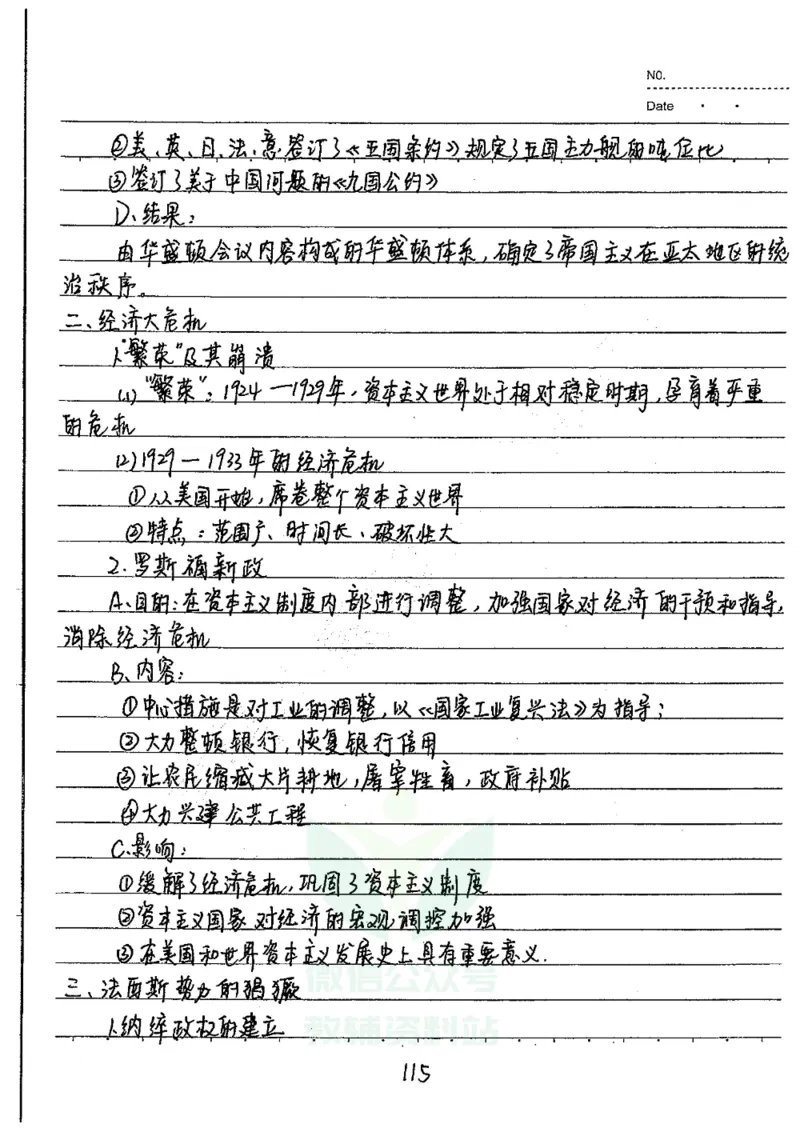 NO.
Date
②美、英、日、法、意签订了《五国条约》规定了五国主力舰的吨位比
③签订了关于中国问题的《九国公约》
D、结果：
由华盛顿会议内容构成的华盛顿体系，确定了帝国主义在亚太地区的统
治秩序。
二、经济大危机
1."繁荣"及其崩溃
(1)"繁荣"：1924—1929年，资本主义世界处于相对稳定时期，孕育着严重
的危机
(2)1929—1933年的经济危机
①从美国开始，席卷整个资本主义世界
②特点：范围广、时间长、破坏性大
2.罗斯福新政
A、目的：在资本主义制度内部进行调整，加强国家对经济的干预和指导，
消除经济危机
B、内容：
①中心措施是对工业的调整，以《国家工业复兴法》为指导；
②大力整顿银行，恢复银行信用
③让农民缩减大片耕地，屠宰牲畜，政府补贴
④大力兴建公共工程
C、影响：
①缓解了经济危机，巩固了资本主义制度
②资本主义国家对经济的宏观调控加强
③在美国和世界资本主义发展史上具有重要意义.
三、法西斯势力的猖獗
1.纳粹政权的建立
115
微信公众号
教辅资料站